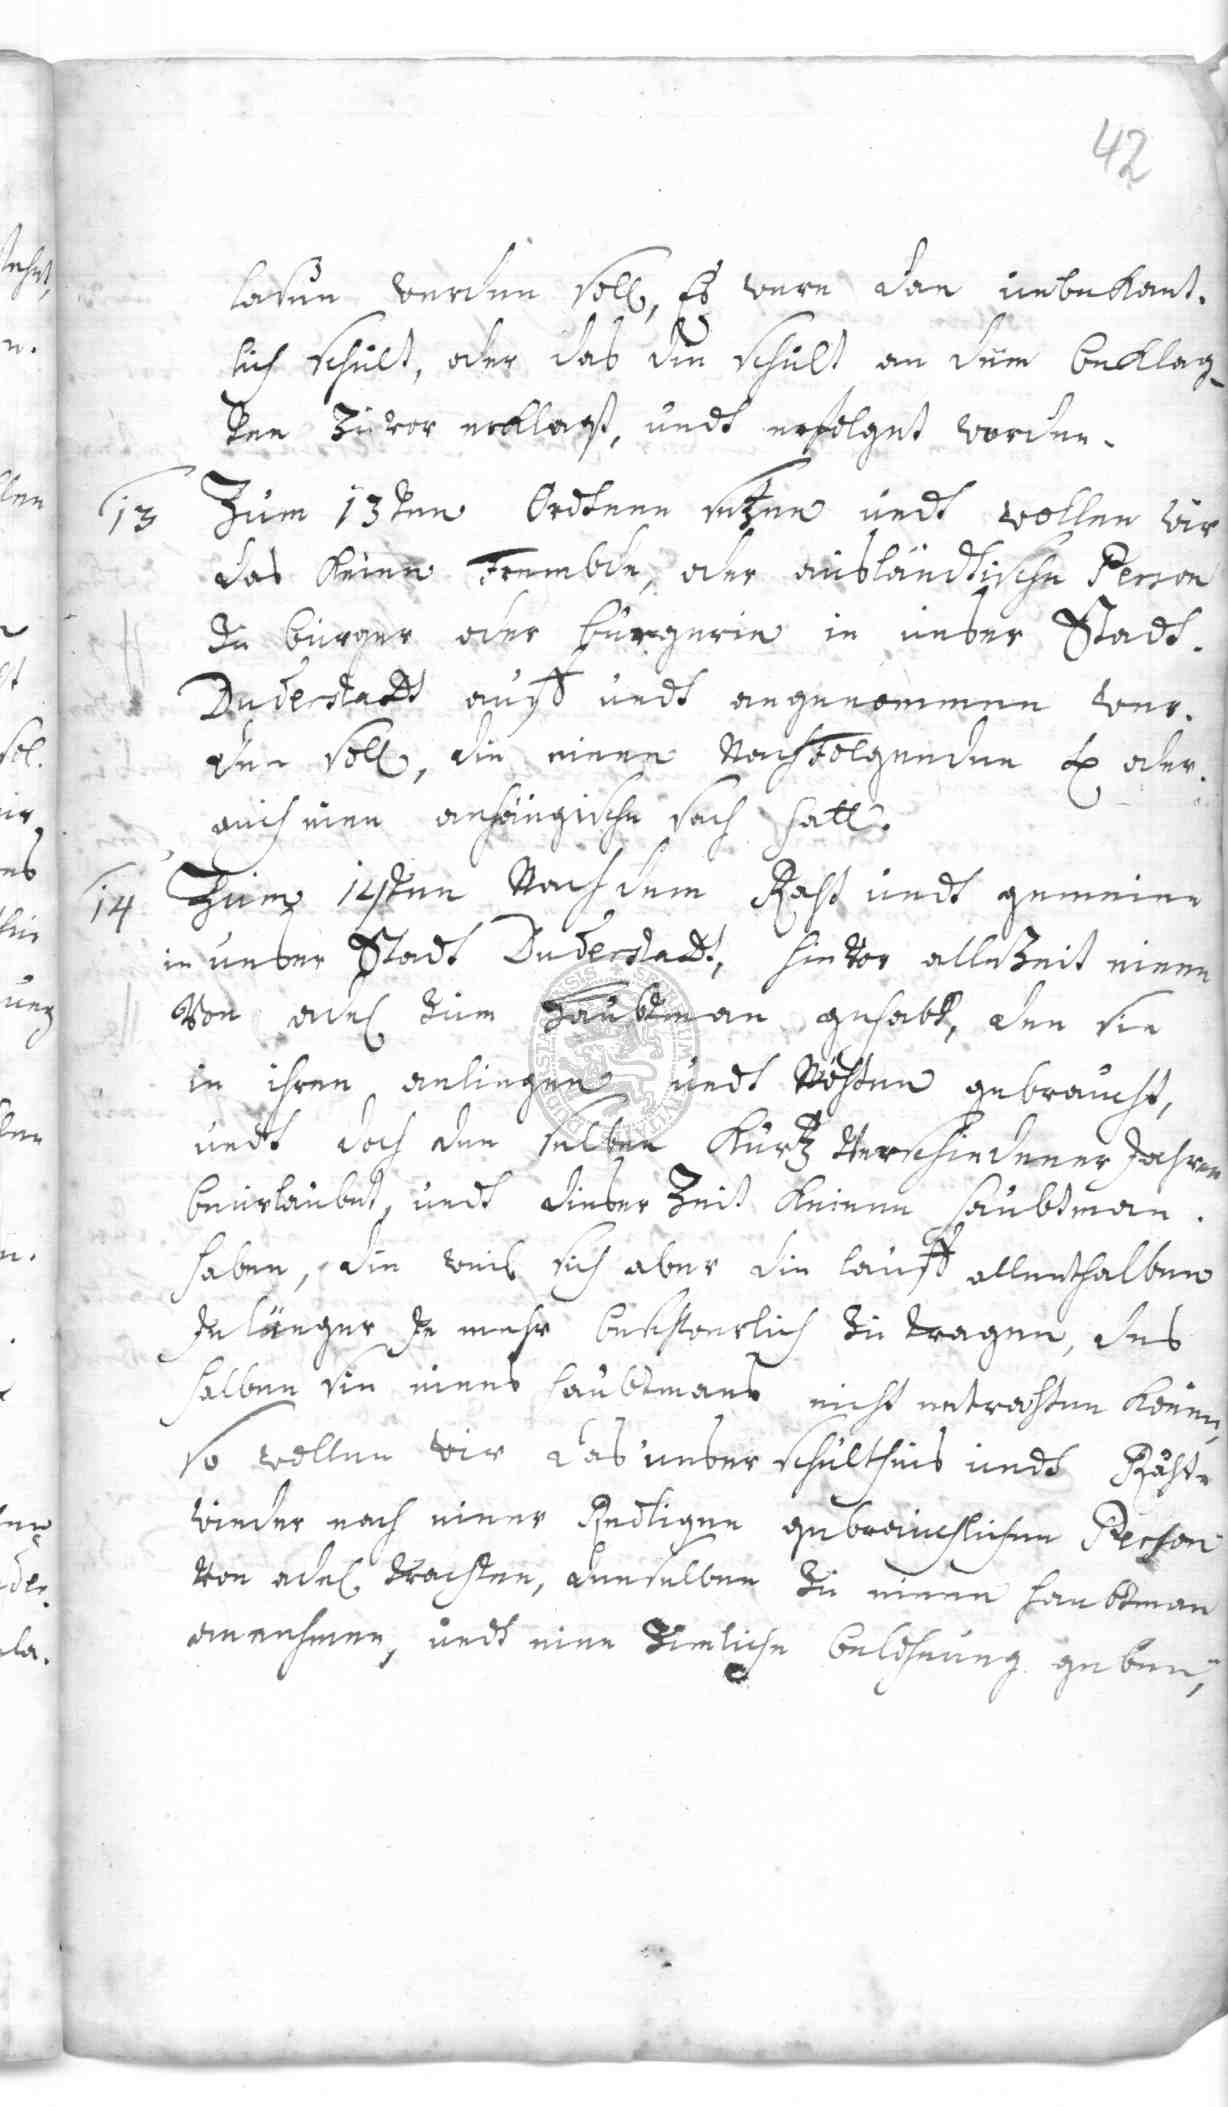 42
laßen werden soll, Es were dan unbekant-
lich schult, oder das die schult an dem beklag-
ten zuvor erklagt, undt erfolget worden.
13 Zum 13ten Ordenen setzen undt wollen wir
das keiene Frembde, oder ausländtische Person
zu burger oder burgerin in unser Stadt
Duderstadt auff undt angenommen wer-
den soll, die einen Nachfolgenden oder
auch eine anhängische sach hatt.
14 Zum 14ten Nach dem Raht undt gemeine
in unser Stadt Duderstadt, hie vor alle Zeit einen
Von adel zum Haubtman gehabt, den sie
in ihren anliegen undt Nöhten gebraucht,
undt doch den selben kurtz verschiedener Jahren
beurlaubet, undt dieser Zeit keinen haubtman
haben, die weil sich aber die lauff allenthalben
Je länger Je mehr beschwerlich zu tragen, des
halben sie eines haubtmans nicht entrahten können,
so wollen wir das unser schultheis undt Räht
wieder nach einer Redligen gebreuchlichen Person
von adel trachten, denselben zu einen haubtman
annehmen, undt eine Zimliche belohnung geben,